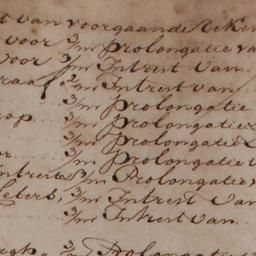 t van voorgaande Reken
voor 3/m Prolongatie va
voor 3/m Intrest van
raaf 3/m Intrest van
3/m Prolongatie
rop 3/m Prolongatie
3/m Prolongatie
or 3/m Prolongatie
Intreste 3/m Prolongatie
leters, 3/m Intrest van
3/m Intrest van
Prolongatie